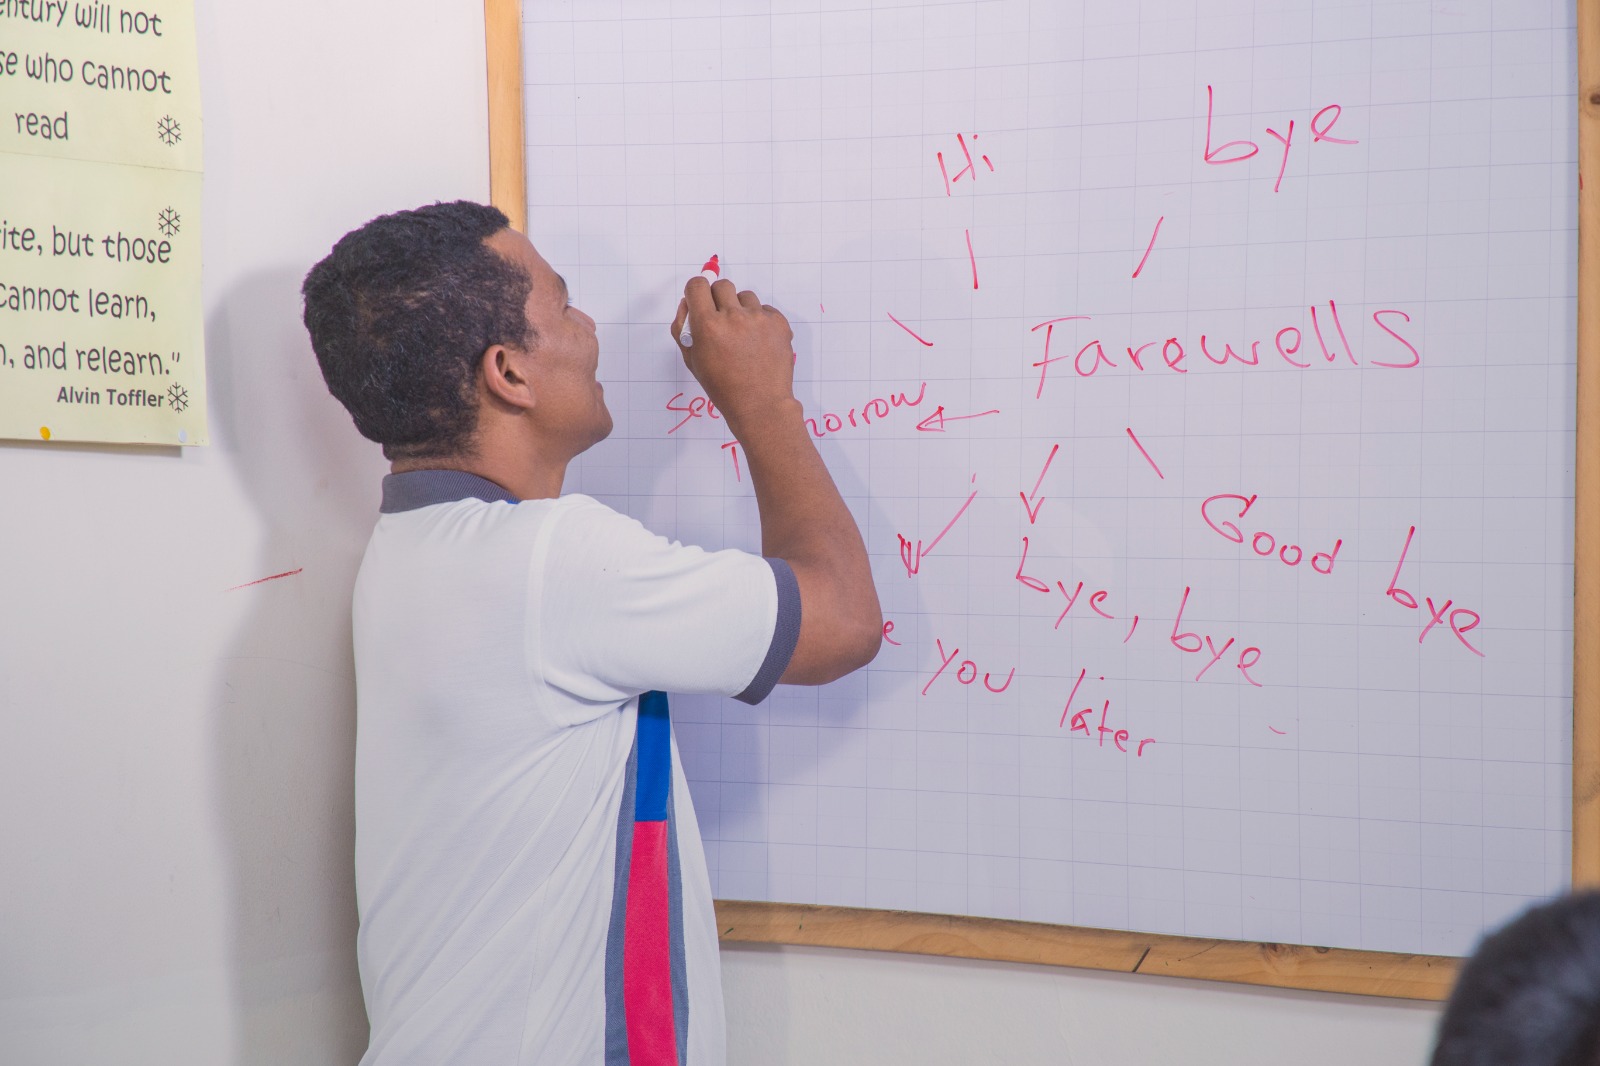 ntury will not
se who cannot
read
rite, but those
cannot learn,
n, and relearn."
Alvin Toffler
Hi
bye
Farewells
see
orrow
T
Good bye
bye, bye
e you later